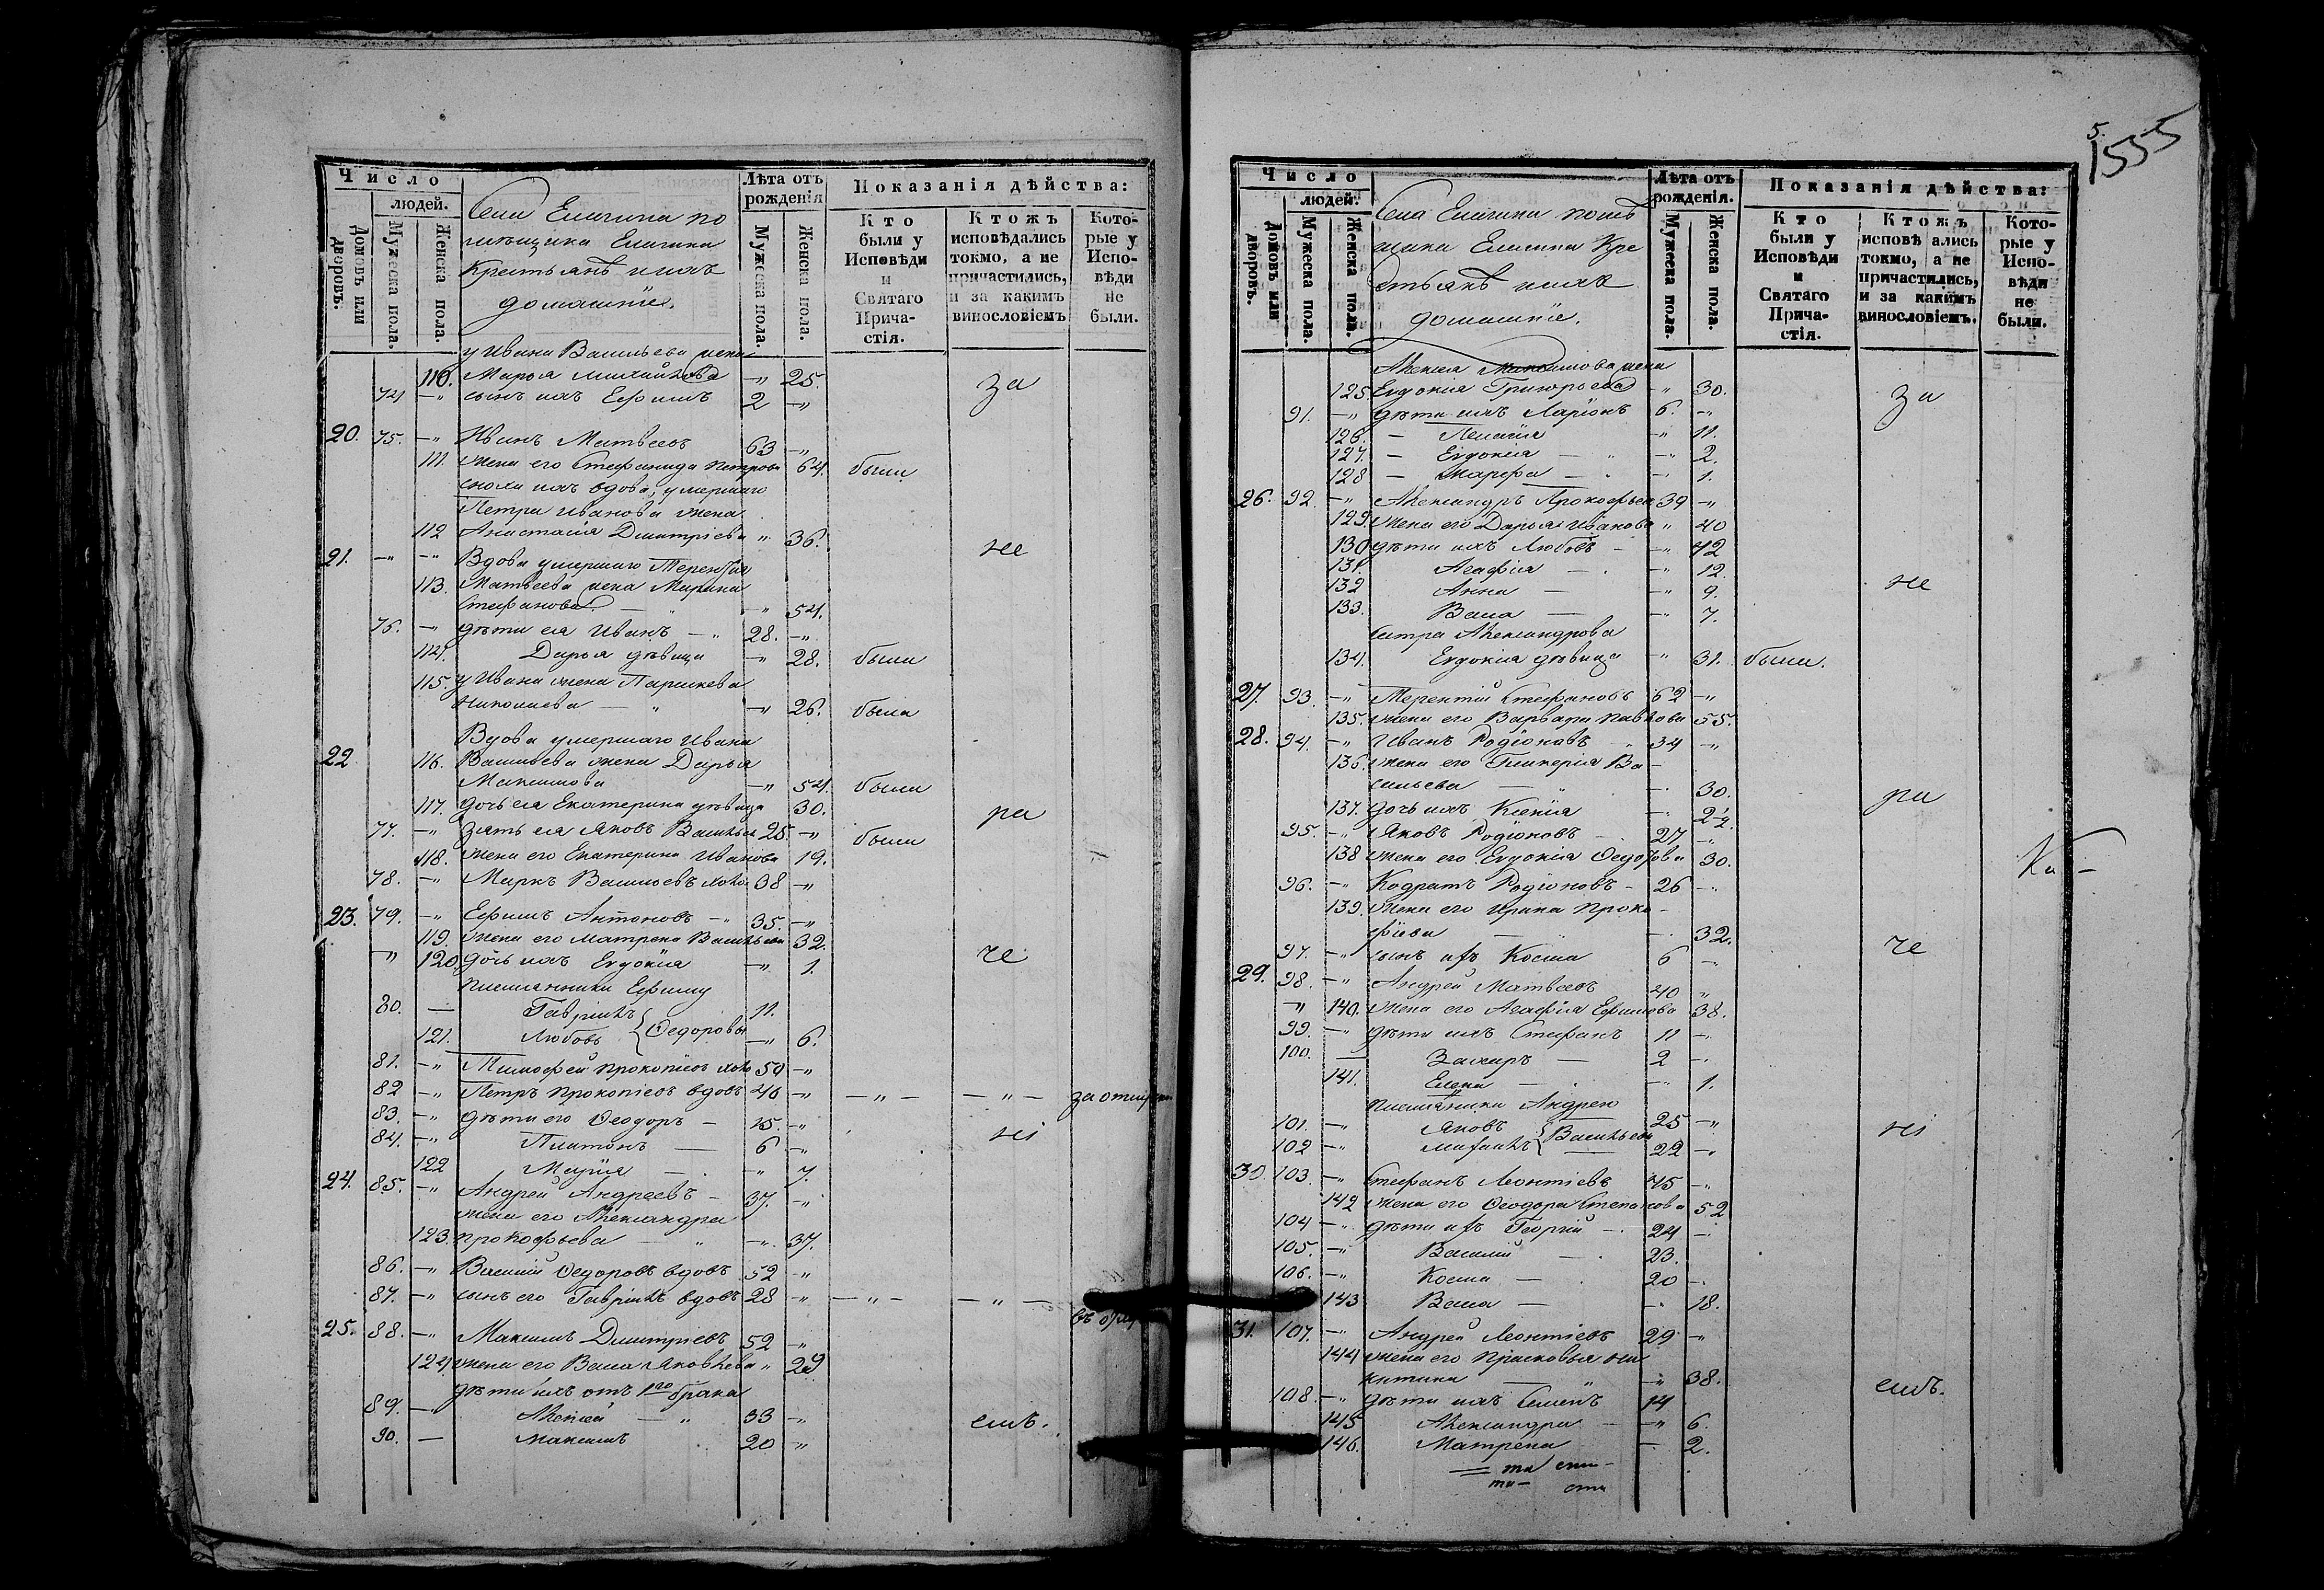 Число
людей.
Домовъ или дворовъ.
Мужеска пола.
Женска пола.
Села Елагина по
мѣщика Елагина
Крестьянѣ и ихъ
домашніе.
Лѣта отъ рожденія
Мужеска пола.
Женска пола.
Показанія дѣйства:
Кто были у Исповѣди и Святаго Причастія.
Ктожъ исповѣдались токмо, а не причастились, и за какимъ винословіемъ
Которые у Исповѣди не были.
у Ивана Васильева жена
110. Марья Михайлова -"- 25. за
74 -"- сынъ ихъ Ефимъ 2 -"-
20. 75. -"- Иванъ Матвеевъ 63 -"-
111. жена его Стефанида Петрова 64. были
сноха ихъ вдова, умершаго
Петра Иванова жена
112 Анастасія Димитріева " 36.
не
21. -"- -"- Вдова умершаго Терентія
113. Матвеева жена Марина
Стефанова -"- 54.
76. -"- дѣти ея Иванъ -"- 28. -"-
114. Дарья дѣвица -"- 28. были
115. у Ивана жена Парасκева
Николаева -"- 26. была
Вдова умершаго Ивана
22 116. Васильева жена Дарья
Максимова -"- 54. были
117. дочь ея Екатерина дѣвица 30. ра
77. -"- зять ея Яковъ Васильев 25. -"- были
118. жена его Екатерина Иванова 19.
78. -"- Маркъ Васильевъ холо 38 -"-
23. 79. -"- Ефимъ Антоновъ -"- 35. -"-
119. жена его Матрена Васильева 32.
-"- 120. дочь ихъ Евдокія -"- 1. че
племянники Ефиму
80. — Гавріилъ 11.
121. Любовь } Ѳедоровы -"- 6.
81. -"- Тимофей Прокопіевъ холо 50 -"-
82 -"- Петръ Прокопіевъ вдовъ 46 -"- -"- -"-
83. -"- дѣти его Ѳеодоръ 15. -"-
ні
84. -"- Платонъ — 6 -"-
122 Марія -"- 7.
24. 85. -"- Андрей Андреевъ - 37. -"-
жена его Александра
123. Прокофьева -"- 37.
86. -"- Василій Ѳедоровъ вдовъ 52 -"-
87. -"- сынъ его Гавріилъ вдовъ 28 -"- -"- -"-
25. 88. -"- Максимъ Димитріевъ 52 -"-
124 жена его Васса Яковлева " 29
дѣти ихъ отъ 1го брака
89. -"- Алексей -"- 33 -"-
емъ.
90. — Максимъ 20 -"-
5.
1555
Число
людей.
Домовъ или дворовъ.
Мужеска пола.
Женска пола.
Села Елагина помѣ
щика Елагина Кре
стьянѣ и ихъ
домашніе.
Лѣта отъ рожденія.
Мужеска пола.
Женска пола.
Показанія дѣйства:
Кто были у Исповѣди и Святаго Причастія.
Ктожъ исповѣ ались токмо, а не причастились, и за какимъ винословіемъ.
Которые у Исповѣди не были.
Алексея Максимова жена
125. Евдокія Григорьева -"- 30. за
91. -"- дѣти ихъ Ларіонъ 6. -"-
126. — Пелагія -"- 11.
127. — Евдокія — -"- 2.
128 — Марфа — 1.
26. 92. -"- Александръ Прокофьев 39 -"-
129. жена его Дарья Иванова " 40
130 дѣти ихъ Любовь — -"- 12
131. Агафія — -"- 12.
132 Анна — -"- 9. не
133. Васса — -"- 7.
сестра Александрова
134. Евдокія дѣвица -"- 31. были.
27. 93. -"- Терентій Стефановъ 62 -"-
135. жена его Варвара Павлова 55.
28. 94. -"- Иванъ Родіоновъ 34 -"-
136. жена его Гликерія Ва-
сильева — 30. ра
137. дочь ихъ Ксенія 2½.
95. -"- Яковъ Родіоновъ 27 -"-
138 жена его Евдокія Ѳедорова 30.
Ка-
96. -"- Кодратъ Родіоновъ - 26 -"-
139. жена его Ирина Проко-
фіева — 32.
97. -"- сынъ ихъ Косма 6 -"- че
29. 98. -"- Андрей Матвеевъ 40 "
-"- 140. жена его Агафія Ефимова 38.
99. -"- дѣти ихъ Стефанъ 11 -"-
100. — Захаръ — 2 -"-
141. Елена — 1.
племянники Андрею
101. -"- Яковъ 25 -"- ні
102 -"- Михаилъ } Васильевы 22 -"-
30. 103. -"- Стефанъ Леонтіевъ 45 -"-
142 жена его Ѳеодора Степанова 52
104 -"- дѣти ихъ Георгій 24 -"-
105. -"- Василій 23.
106. -"- Косма — 20 -"-
143 Васса — 18.
31. 107. -"- Андрей Леонтіевъ 29 -"-
144 жена его Прасковья Ни
китина — -"- 38.
емъ.
108. -"- дѣти ихъ Семенъ 14
145 Александра — -"- 6.
146. Матрена — 2.